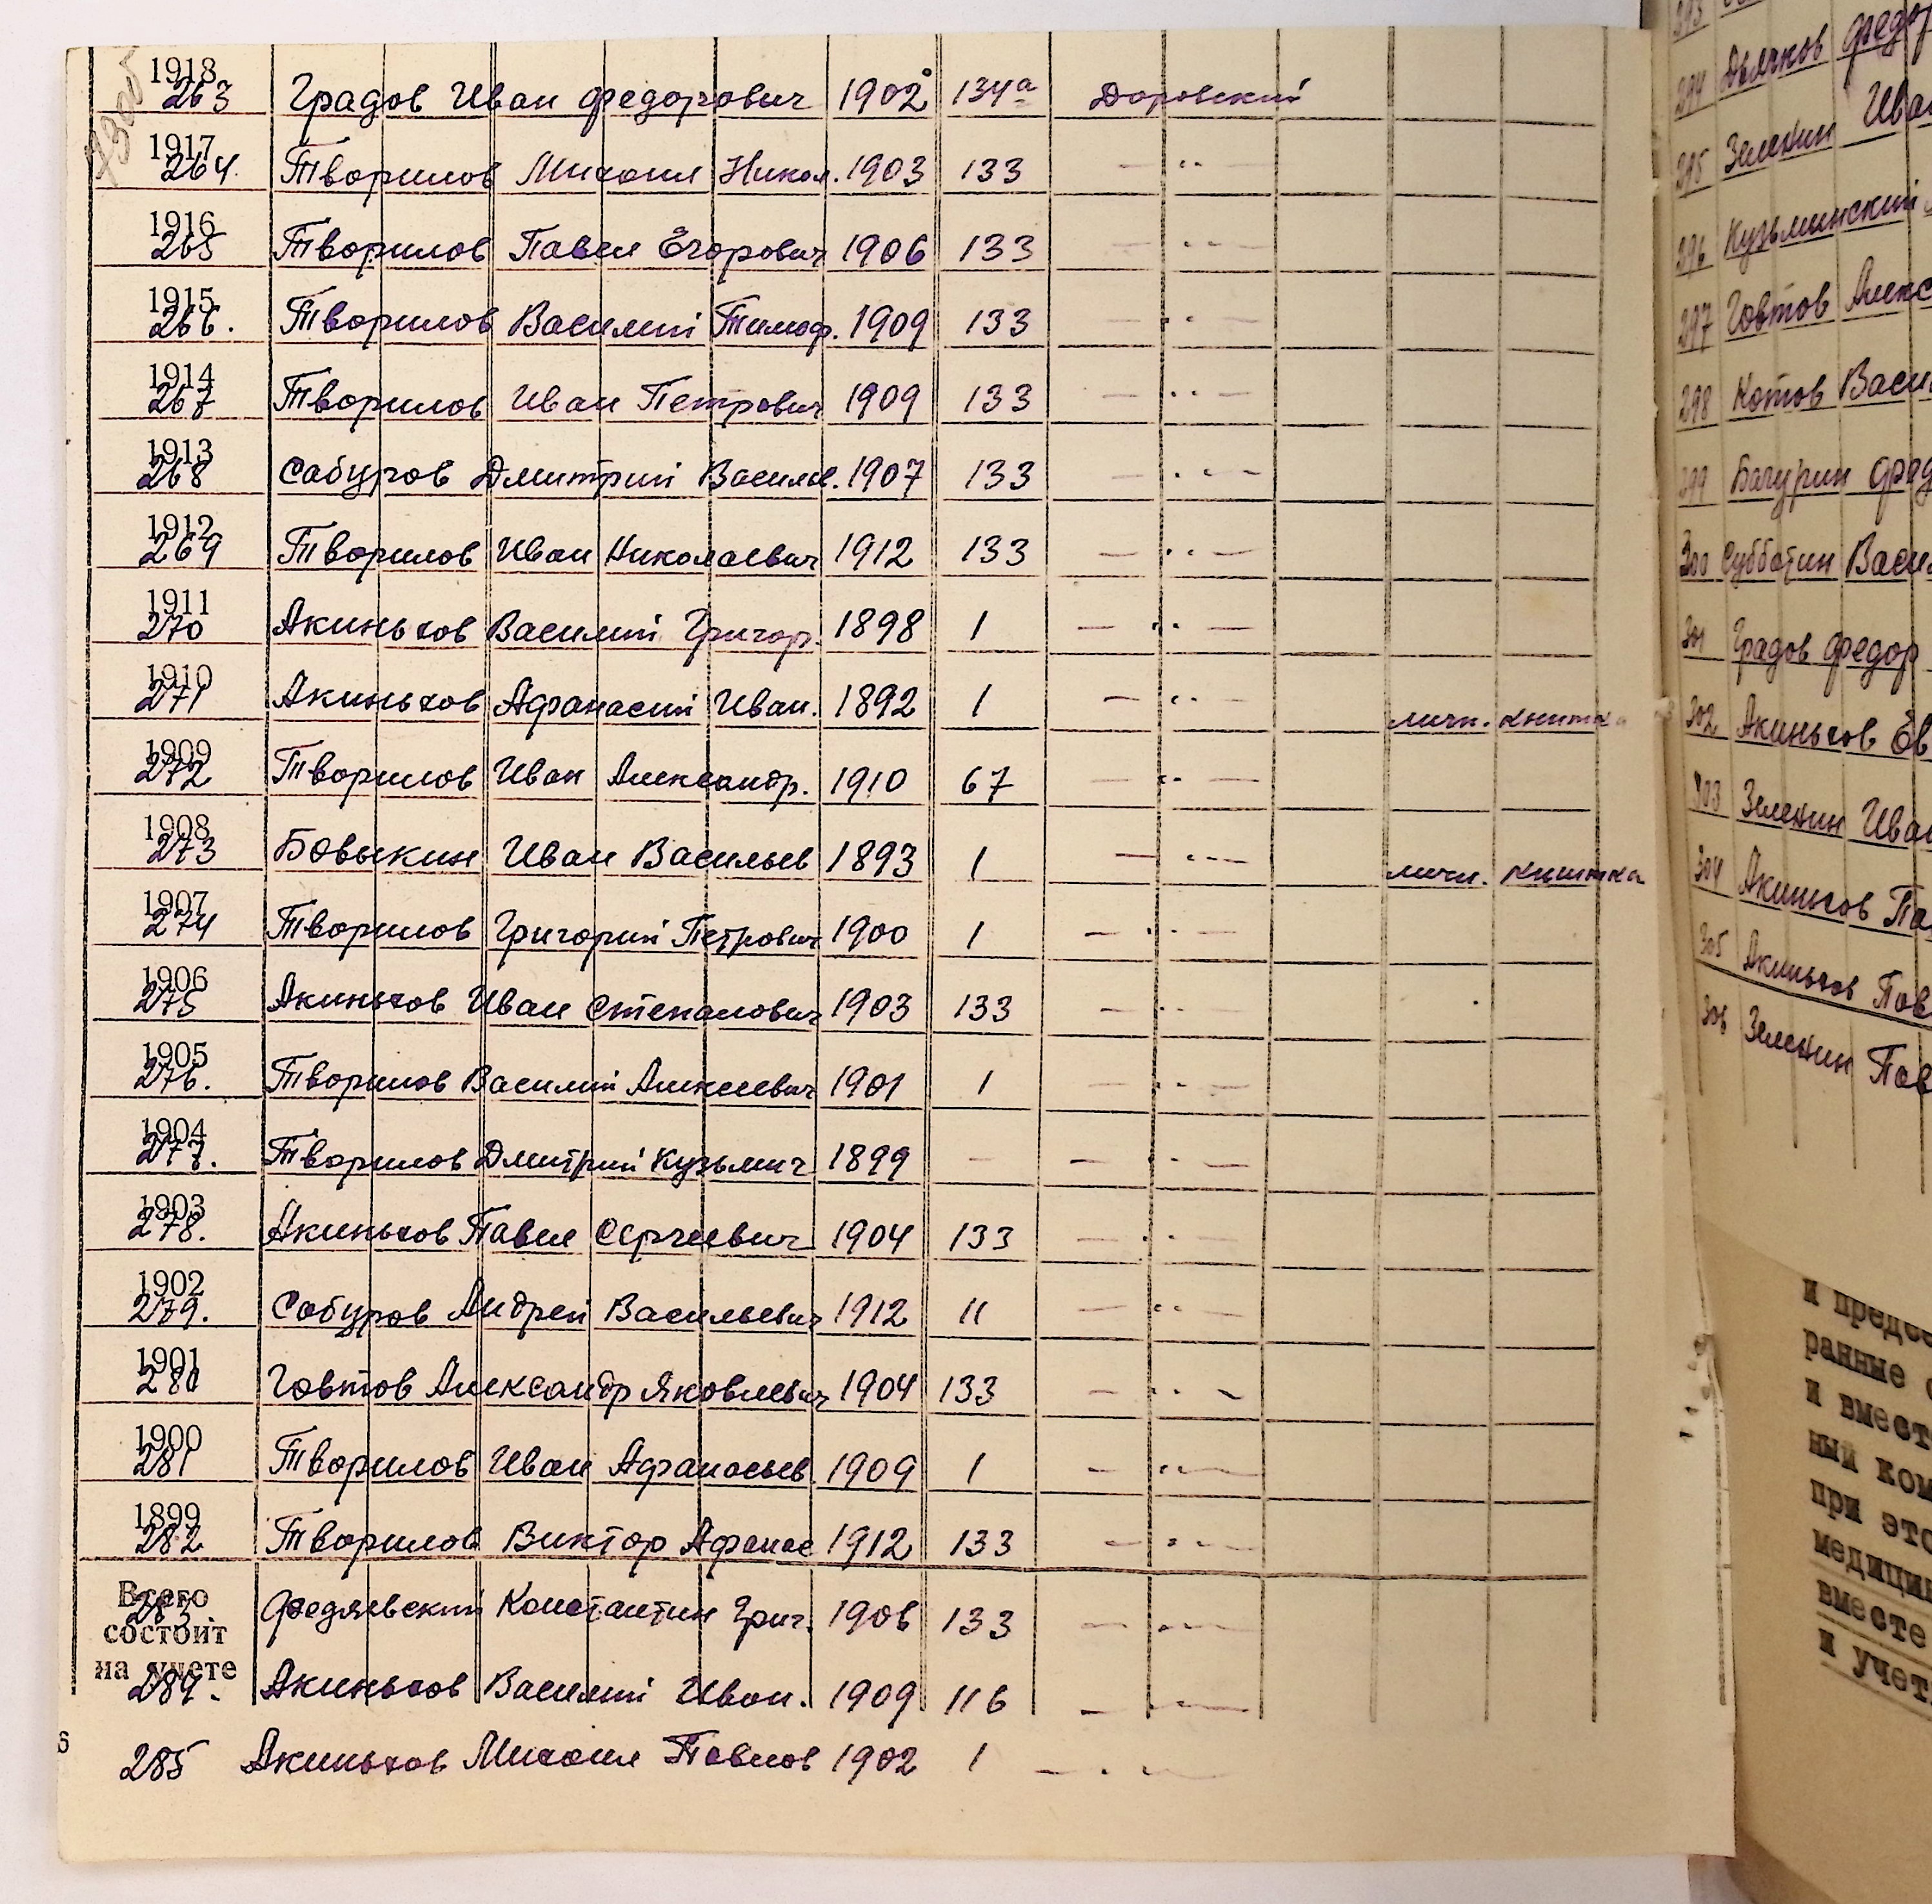 1918
263 Градов Иван Федорович 1902 134а Доровский
1917
264. Творилов Михаил Никол. 1903 133 — " —
1916
265 Творилов Павел Егорович 1906 133 — " —
1915
266. Творилов Василий Тимоф. 1909 133 — " —
1914
267 Творилов Иван Петрович 1909 133 — " —
1913
268 Сабуров Дмитрий Васильев. 1907 133 — " —
1912
269 Творилов Иван Николаевич 1912 133 — " —
1911
270 Акиньхов Василий Григор. 1898 1 — " —
1910
271 Акиньхов Афанасий Иван. 1892 1 — " — личн. книжка
1909
272 Творилов Иван Александр. 1910 67 — " —
1908
273 Бовыкин Иван Васильев 1893 1 — " — личн. книжка
1907
274 Творилов Григорий Петрович 1900 1 — " —
1906
275 Акиньхов Иван Степанович 1903 133 — " —
1905
276. Творилов Василий Алексеевич 1901 1 — " —
1904
277. Творилов Дмитрий Кузьмич 1899 — — " —
1903
278. Акиньхов Павел Сергеевич 1904 133 — " —
1902
279. Сабуров Андрей Васильевич 1912 11 — " —
1901
280 Говтов Александр Яковлевич 1904 133 — " —
1900
281 Творилов Иван Афанасьев. 1909 1 — " —
1899
282 Творилов Виктор Афанас 1912 133 — " —
Всего
283 Федяевский Константин Григ. 1906 133 — " —
состоит
на учете
284. Акиньхов Василий Иван. 1909 116 — " —
6
285 Акиньхов Михаил Павлов 1902 1 — " —
293
294 Дьячков Федор
Иван
295 Зеленин
296 Кузьминский
297 Говтов Алекс
298 Котов Васи
299 Бачурин Фед
300 Субботин Васил
301 Градов Федор
302 Акиньхов Ев
303 Зеленин Иван
304 Акиньхов Па
305 Акиньхов Пав
306 Зеленин Пав
и предсе
ранные с
и вмест
ный ком
при это
медицин
вместе
и учет